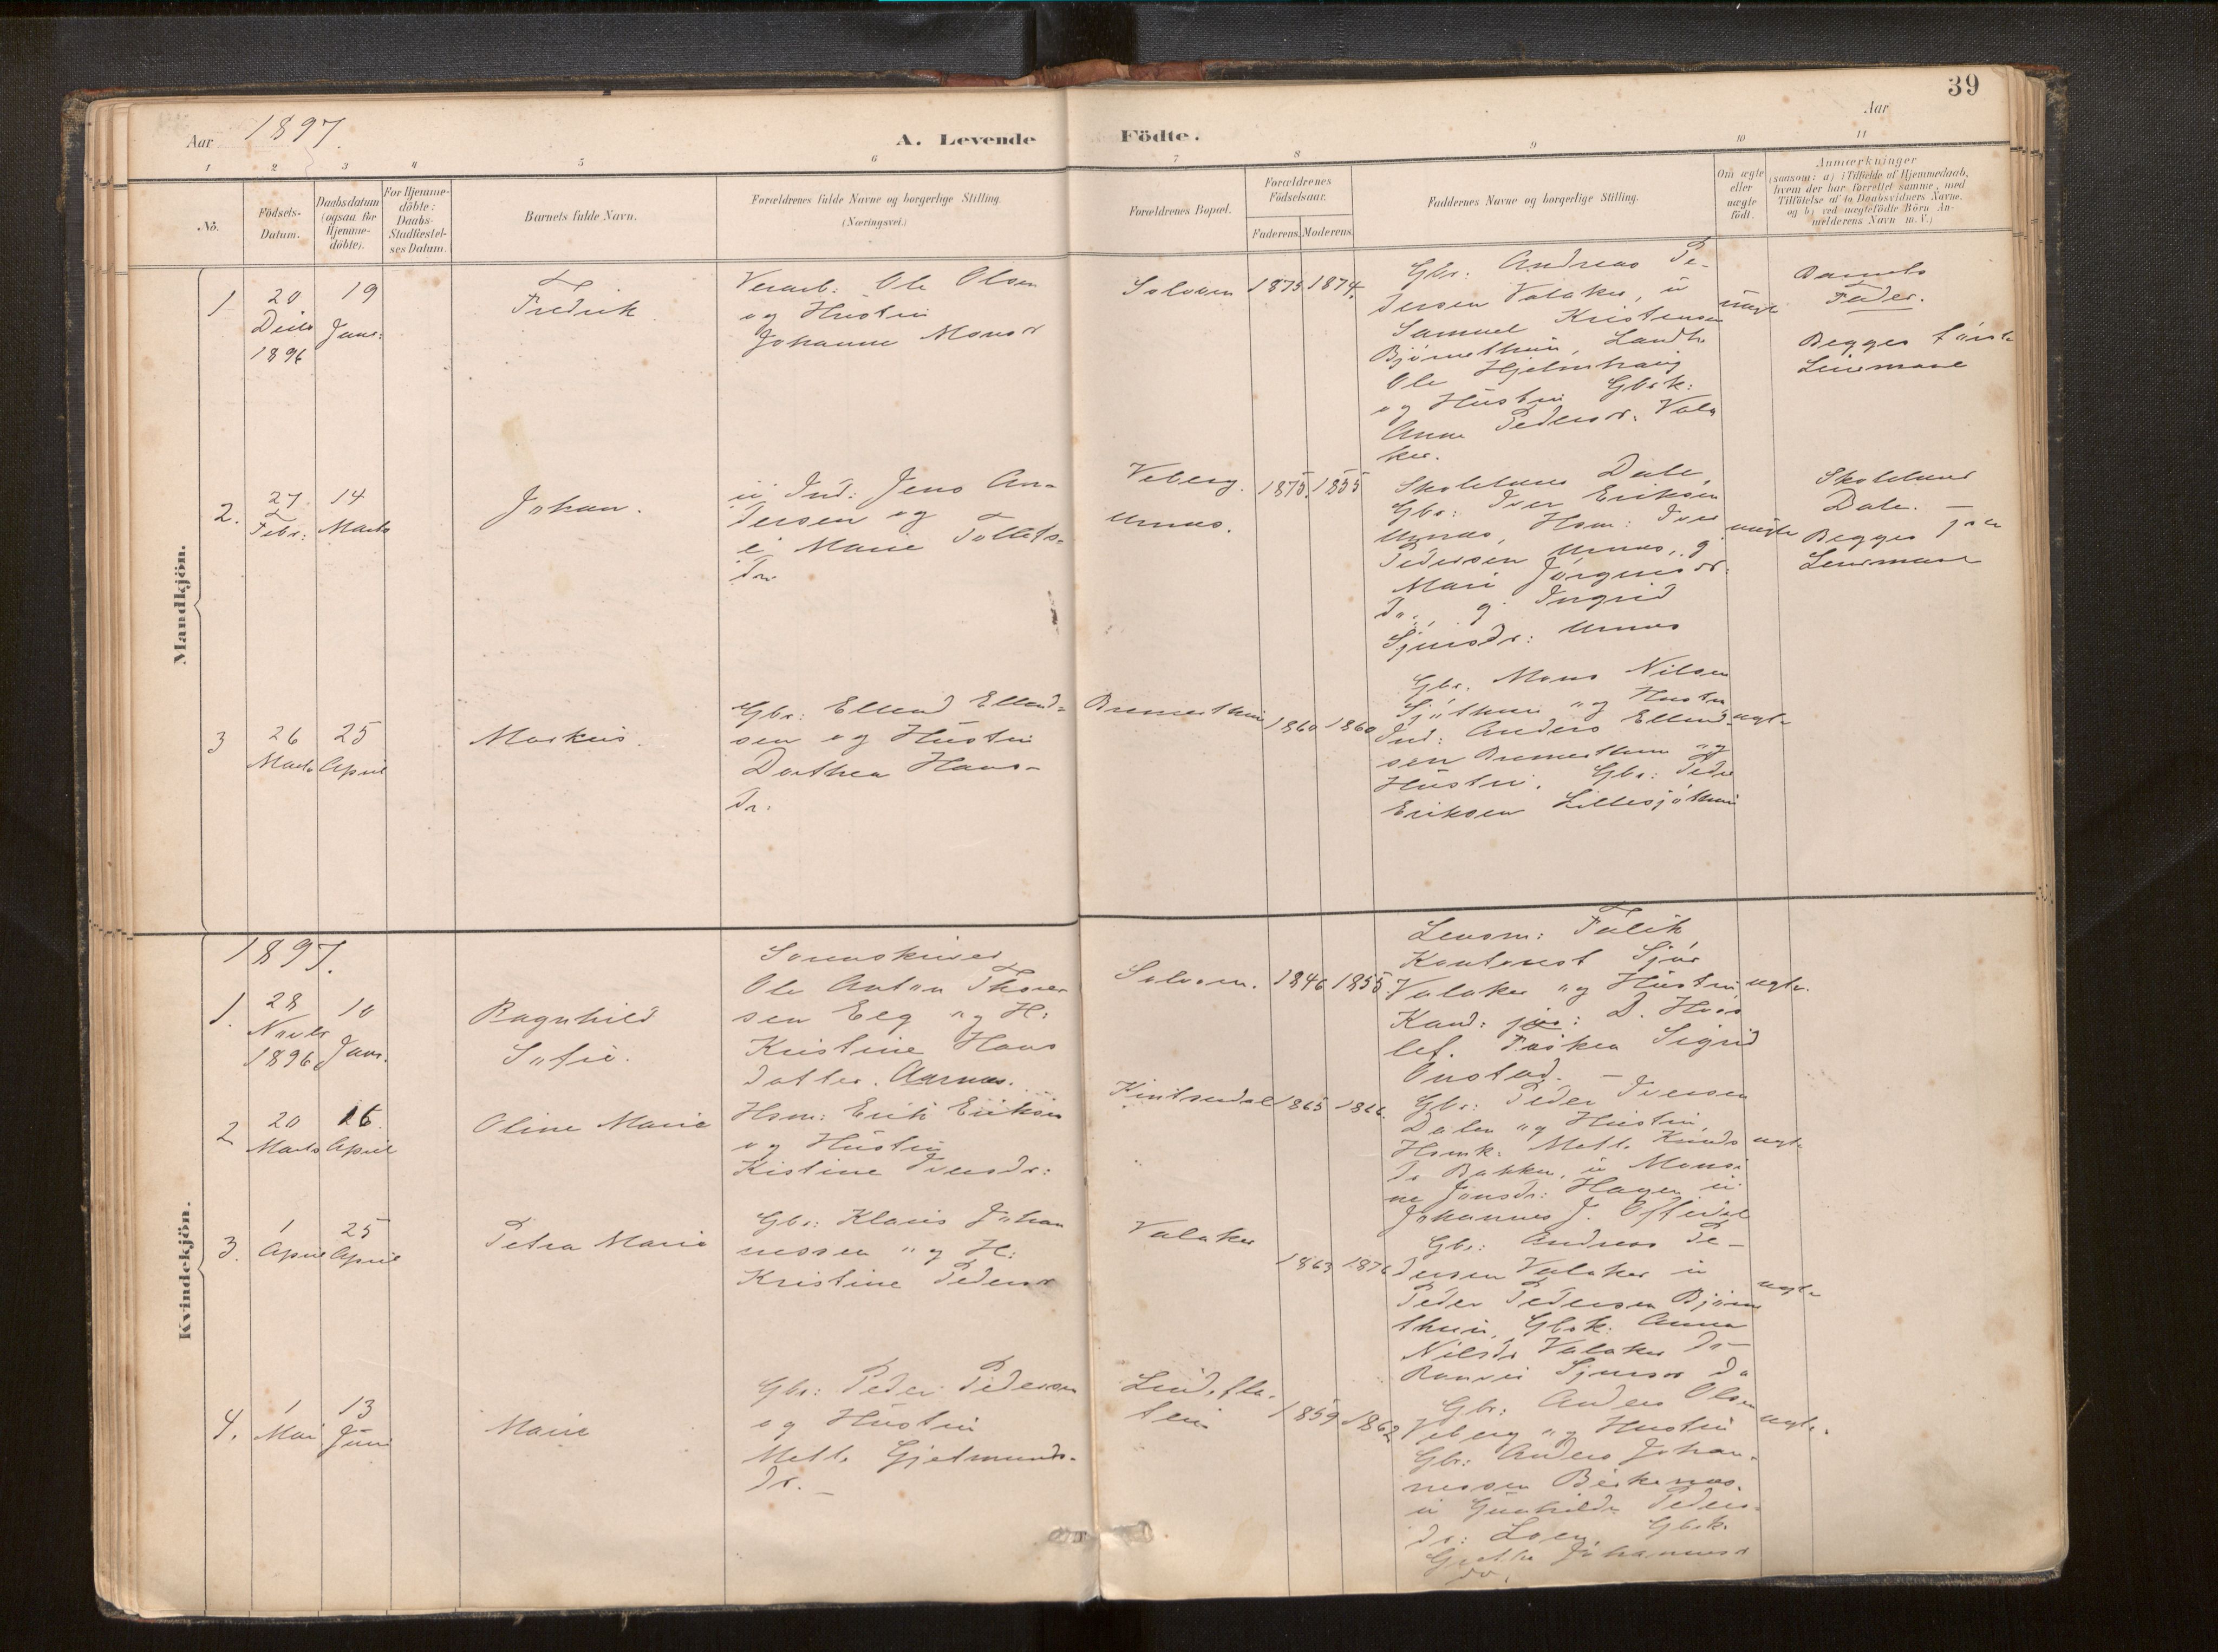 39
Aar 1897.
A. Levende Födte.
Aar
1 2 3 4 5 6 7 8 9 10 11
No.
Födsels-Datum.
Daabsdatum (ogsaa for Hjemme-döbte).
For Hjemme-döbte: Daabs-Stadfæstel-ses Datum.
Barnets fulde Navn.
Forældrenes fulde Navne og borgerlige Stilling
(Næringsvei.)
Forældrenes Bopæl.
Forældrenes Födselsaar.
Faderens. Moderens.
Faddernes Navne og borgerlige Stilling.
Om ægte eller uægte födt.
Anmærkninger
(saasom: a) i Tilfælde af Hjemmedaab,
hvem der har forrettet samme, med
Tilföielse af to Daabsvidners Navne,
og b) ved uegtefödte Börn An-
melderens Navn m. V.)
Mandkjön.
1
20
Decbr
1896
19
Janr:
Fredrik
Ole Olsen
og Hustru
Johanne Monsdr
Solvorn
1875 1874.
Gbr: Andreas Pe-
dersen Valaker, u
Samuel Kristensen
Bjørnethun, Landh.
Ole Hjelmhaug
og Hustru Gbsk:
Anna Pedersdr. Vala
ker.
uægte
Barnets
Fader.
Begges første
Leiermaal
2.
27
Febr:
14
Marts
Johan.
u Ind: Jens An-
dersen og
p Marie Tollefs-
dr.
Veberg.
Urnæs.
1875. 1855
Skoleland Dale,
Gbr: Iver Eriksen
Urnæs, Hsm: Iver
Pedersen Urnæs, g
Mari Jörgensdr.
do, g Ingrid
Sjursdr: Urnæs
uægte
Dale. –
Begges
Leiermaal
3
26
Marts
25
April
Markus.
Gbr: Ellend Ellend-
sen og Hustru
Dorthea Hans-
dr.
Bremerthun
1860 1860
Gbr. Mons Nilsen
Sjøthun og Hustru
Ind: Anders Ellend-
sen Bremerthun og
Hustru. Gbr: Peder
Eriksen Lillesjøthun
ægte
Kvindekjön.
1897.
1.
28
Novbr
1896
10
Janr.
Ragnhild
Sofie.
Sorenskriver
Ole Anton Thore
sen Elg og H:
Kristine Hans
datter. Aarnæs.
Solvorn.
1846 1855.
Lensm: Falch
Kontorist Sjur
Valaker og Hustru
Kand: jur: D.
Frøken Sigrid
Onstad. –
ægte.
2
20
Marts
16.
April
Oline Marie
Hsm: Erik Eriksen
og Hustru
Kistine Iversdr:
Kinsedal
1865 1866.
Gbr: Peder Iversen
Dalen og Hustru,
Hsmk: Mette Knuds
dr Bakken, u Monsi
ne Jonsdr: Hagen u
Johannes J. Oftedal
ægte
3.
1
April
25
April
Petra Marie
Gbr: Klaus Johan
nessen og H:
Kristine Pedersdr
Valaker
1863 1876
Gbr: Andreas Pe-
dersen Valaker u
Peder Pedersen Bjørne
thun, Gbsk: Anna
Nilsdr Valaker do
Ranvei Sjursdr do
ægte
4.
1
Mai
13
Juni
Marie
Gbr: Peder Pedersen
og Hustru
Mette Gjelmunds-
dr. –
Lindefla-
ten
1859 1862
Gbr: Anders Olsen
Veberg og Hustru
Gbr: Anders Johan-
nessen Birkenæs.
u Gunhilda Peders-
dr: Loen, Gbsk.
Grethe Johannesdr
do.
ægte.